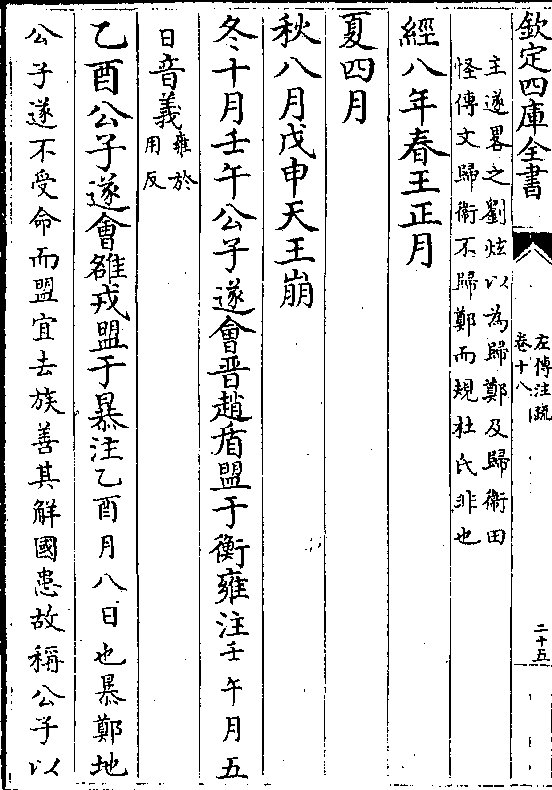 欽定四庫全書
左傳注疏
卷十八
二十五
主遂畧之劉炫以為歸鄭及歸衛田
怪傳文歸衛不歸鄭而規杜氏非也
經八年春王正月
夏四月
秋八月戊申天王崩
冬十月壬午公子遂會晉趙盾盟于衡雍注壬午月五
日音義雍於
用反
乙酉公子遂會雒戎盟于暴注乙酉月八日也暴鄭地
公子遂不受命而盟宜去族善其解國患故稱公子以